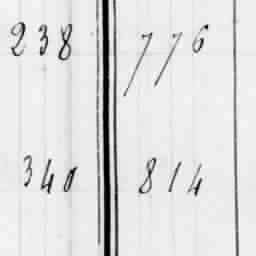 238 776
340 814